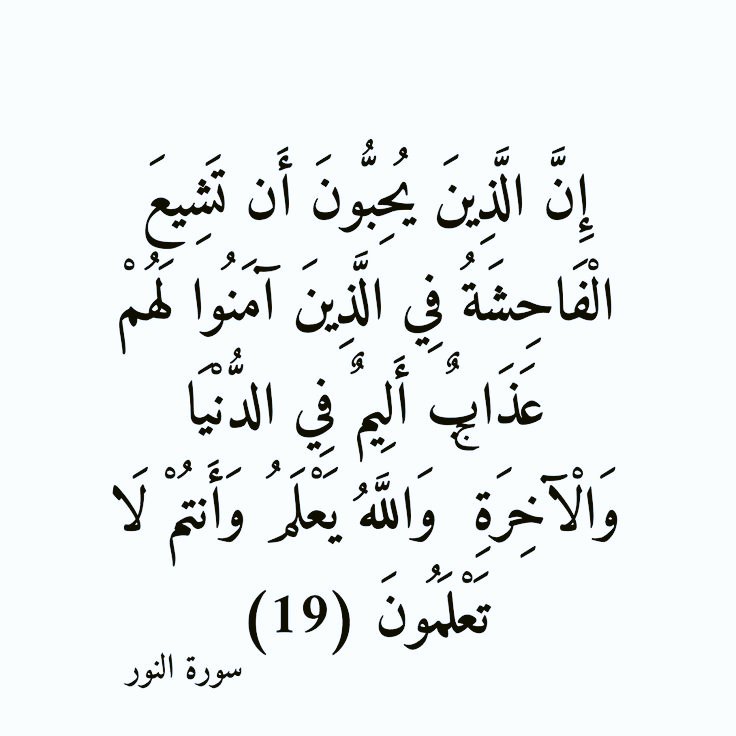 إِنَّ الَّذِينَ يُحِبُّونَ أَن تَشِيعَ
الْفَاحِشَةُ فِي الَّذِينَ آمَنُوا لَهُمْ
عَذَابٌ أَلِيمٌ فِي الدُّنْيَا
وَالْآخِرَةِ ۚ وَاللَّهُ يَعْلَمُ وَأَنتُمْ لَا
تَعْلَمُونَ (19)
سورة النور